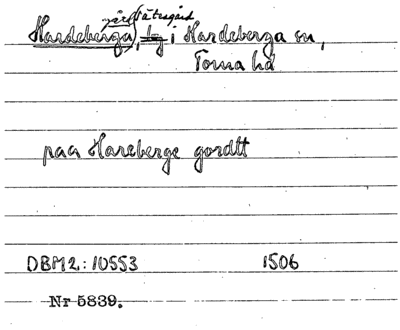 gård Sätesgård
Hardeberga, by i Hardeberga sn,
Torna hd
paa Hareberge gordtt
DBM2:10553 1506
Nr 5839.